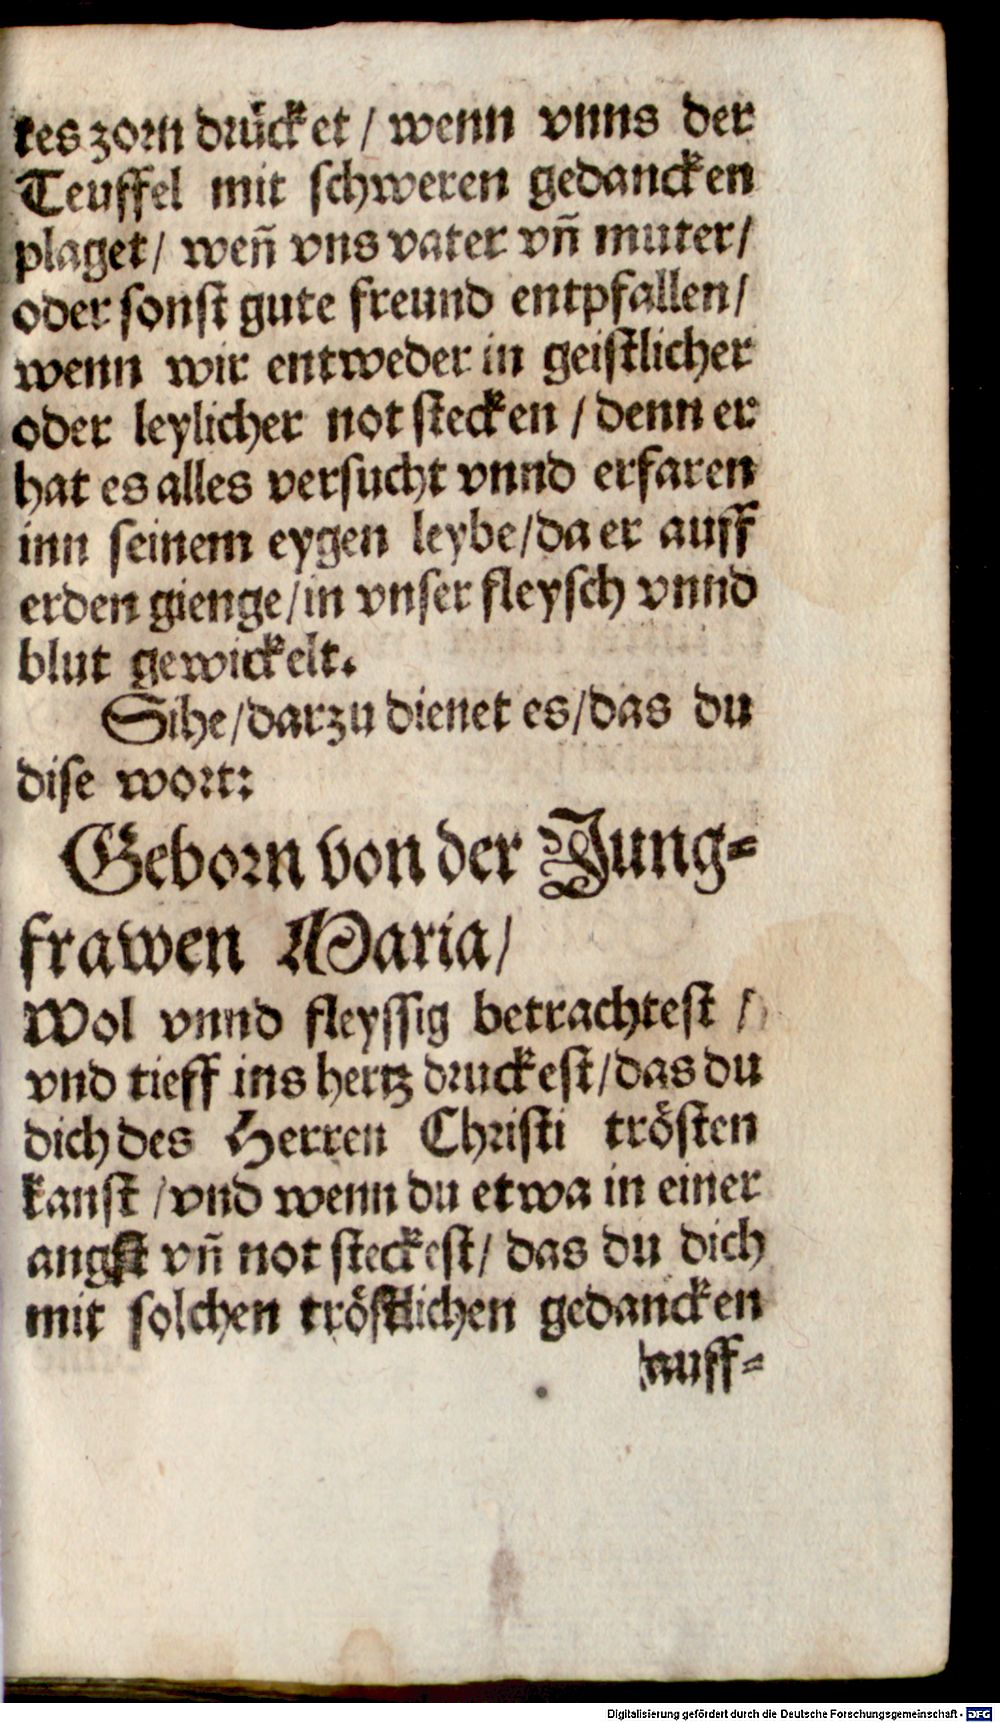 tes zorn drücket / wenn vnns der
Teuffel mit schweren gedancken
plaget / weñ vns vater vñ muter /
oder sonst gute freund entpfallen /
wenn wir entweder in geistlicher
oder leylicher not stecken / denn er
hat es alles versucht vnnd erfaren
inn seinem eygen leybe / da er auff
erden gienge / in vnser fleysch vnnd
blut gewickelt.
Sihe / darzu dienet es / das du
dise wort:
Geborn von der Jung⸗
frawen Maria /
Wol vnnd fleyssig betrachtest /
vnd tieff ins hertz druckest / das du
dich des Herren Christi trösten
kanst / vnd wenn du etwa in einer
angst vñ not steckest / das du dich
mit solchen tröstlichen gedancken
auff⸗
Digitalisierung gefördert durch die Deutsche Forschungsgemeinschaft - DFG